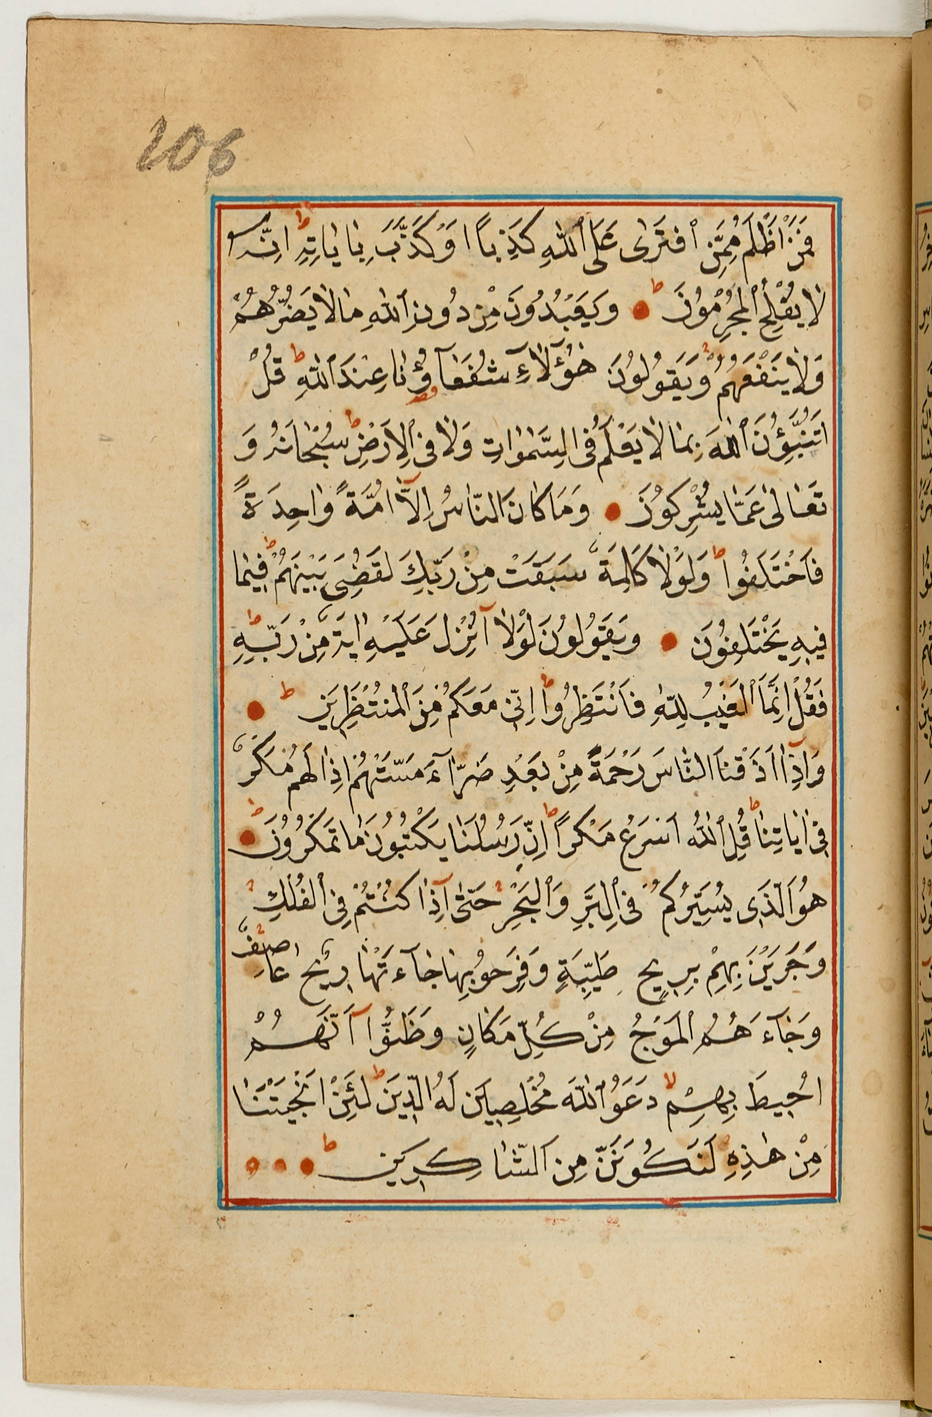 206
فَمَنْ اَظْلَمُ مِمَّنِ افْتَرٰى عَلَى اللهِ كَذِبًا اَوْ كَذَّبَ بِاٰيَاتِهِ اِنَّهُ
لَا يُفْلِحُ الْمُجْرِمُونَ وَيَعْبُدُونَ مِنْ دُونِ اللهِ مَا لَا يَضُرُّهُمْ
وَلَا يَنْفَعُهُمْ وَيَقُولُونَ هٰؤُلَاءِ شُفَعَاؤُنَا عِنْدَ اللهِ قُلْ
اَتُنَبِّؤُنَ اللهَ بِمَا لَا يَعْلَمُ فِى السَّمٰوَاتِ وَلَا فِى الْاَرْضِ سُبْحَانَهُ وَ
تَعَالٰى عَمَّا يُشْرِكُونَ وَمَا كَانَ النَّاسُ اِلَّا اُمَّةً وَاحِدَةً
فَاخْتَلَفُوا وَلَوْلَا كَلِمَةٌ سَبَقَتْ مِنْ رَبِّكَ لَقُضِىَ بَيْنَهُمْ فِيمَا
فِيهِ يَخْتَلِفُونَ وَيَقُولُونَ لَوْلَا اُنْزِلَ عَلَيْهِ اٰيَةٌ مِنْ رَبِّهِ
فَقُلْ اِنَّمَا الْغَيْبُ لِلّٰهِ فَانْتَظِرُوا اِنِّى مَعَكُمْ مِنَ الْمُنْتَظِرِينَ
وَاِذَا اَذَقْنَا النَّاسَ رَحْمَةً مِنْ بَعْدِ ضَرَّاءَ مَسَّتْهُمْ اِذَا لَهُمْ مَكْرٌ
فِى اٰيَاتِنَا قُلِ اللهُ اَسْرَعُ مَكْرًا اِنَّ رُسُلَنَا يَكْتُبُونَ مَا تَمْكُرُونَ
هُوَ الَّذِى يُسَيِّرُكُمْ فِى الْبَرِّ وَالْبَحْرِ حَتّٰى اِذَا كُنْتُمْ فِى الْفُلْكِ
وَجَرَيْنَ بِهِمْ بِرِيحٍ طَيِّبَةٍ وَفَرِحُو بِهَا جَاءَتْهَا رِيحٌ عَاصِفٌ
وَجَاءَهُمُ الْمَوْجُ مِنْ كُلِّ مَكَانٍ وَظَنُّوا اَنَّهُمْ
اُحِيطَ بِهِمْ دَعَوُا اللهَ مُخْلِصِينَ لَهُ الدِّينَ لَئِنْ اَنْجَيْتَنَا
مِنْ هٰذِهِ لَنَكُونَنَّ مِنَ الشَّاكِرِينَ